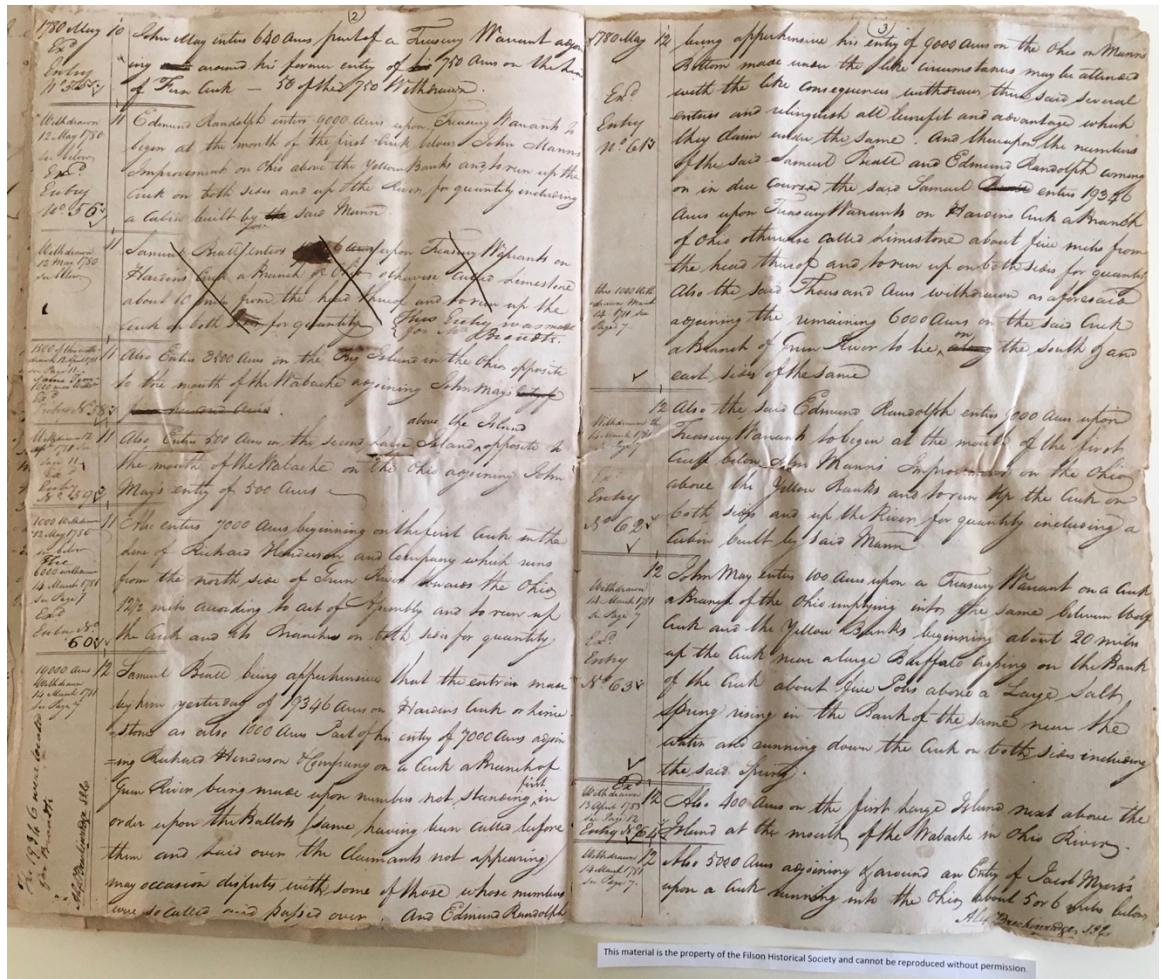 (2)
1780 May 10 John May enters 640 Acres part of a Treasury Warrant adjoin
Exd
ing around his former entry of 750 Acres on the
Entry
of Fern Creek — 50 of the 750 Withdrawn.
Withdrawn
12 May 1780
see below
Exd
Entry
No 56
11 Edmund Randolph enters 9000 Acres upon Treasury Warrants to
begin at the mouth of the first Creek below John Manns
Improvement on Ohio above the Yellow Banks and to run up the
Creek on both sides and up the River for quantity including
a Cabin built by said Mann.
Withdrawn
12 May 1780
see below
11 Samuel Beall enters upon Treasury Warrants on
Hardens Creek a Branch of Ohio otherwise Called Limestone
about 10 from the head thereof and to run up the
Creek on both sides for quantity
This Entry was made
for
11 Also Enters 3200 Acres on the Big Island in the Ohio opposite
to the mouth of the Wabache adjoining John May's
11 Also Enters 500 Acres in the second large Island above the Island opposite to
the mouth of the Wabache on the Ohio adjoining John
May's entry of 500 Acres
1000 Withdrawn
12 May 1780
see below
6000 withdrawn
14 March 1781
see Page 7
Exd
Entry No
60
11 Also enters 7000 Acres beginning on the first Creek in the
line of Richard Henderson and Company which runs
from the north side of Green River towards the Ohio
12 1/2 miles according to act of Assembly and to run up
the Creek and its Branches on both sides for quantity
14000 Acres
Withdrawn
14 March 1781
see Page 7
12 Samuel Beall being apprehensive that the entries made
by him yesterday of 19346 Acres on Hardins Creek or Lime
=stone as also 1000 Acres Part of his entry of 7000 Acres adjoin
=ing Richard Henderson & Company on a Creek a Branch of
Green River being made upon numbers not standing first in
order upon the Ballots (same having been called before
them and laid over the Claimants not appearing)
may occasion disputes with some of those whose numbers
were so called and passed over. And Edmund Randolph
The 19346 were
(3)
1780 May 12 being apprehensive his entry of 9000 Acres on the Ohio on Manns
Bottom made under the like circumstances may be attended
with the like consequences withdraws these said several
entries and relinquish all benefit and advantage which
they claim under the same. And thereupon the numbers
of the said Samuel Beall and Edmund Randolph coming
on in due Course, the said Samuel enters 19346
Acres upon Treasury Warrants on Hardins Creek a Branch
of Ohio otherwise called Limestone about five miles from
the head thereof and to run up on both sides for quantity
Also the said Thousand Acres withdrawn as aforesaid
adjoining the remaining 6000 Acres on the said Creek
a Branch of Green River to lie on the south and
east sides of the same
Exd
Entry
No 61
this 1000 With
drawn March
14 1781 see
Page 7.
12 Also the said Edmund Randolph enters 9000 Acres upon
Treasury Warrants to begin at the mouth of the first
Creek below John Manns Improvement on the Ohio
above the Yellow Banks and to run up the Creek on
both sides and up the River for quantity including a
Cabin built by said Mann
Entry
No 62
12 John May enters 100 Acres upon a Treasury Warrant on a Creek
a Branch of the Ohio emptying into the same between
Creek and the Yellow Banks beginning about 20 miles
up the Creek near a large Buffalo Crossing on the Bank
of the Creek about five Poles above a Large Salt
Spring rising in the Bank of the same near the
water and running down the Creek on both sides including
the said Spring.
Withdrawn
14 March 1781
see Page 7
Exd
Entry
No 63
12 Also 400 Acres on the first large Island next above the
Island at the mouth of the Wabache in Ohio River
Exd
Withdrawn
13 April 1783
see Page 12
Entry No 64
12 Also 5000 Acres adjoining & around an Entry of Jacob Myers's
upon a Creek running into the Ohio about 5 or 6 miles below
Withdrawn
14 March 1781
see Page 7.
This material is the property of the Filson Historical Society and cannot be reproduced without permission.